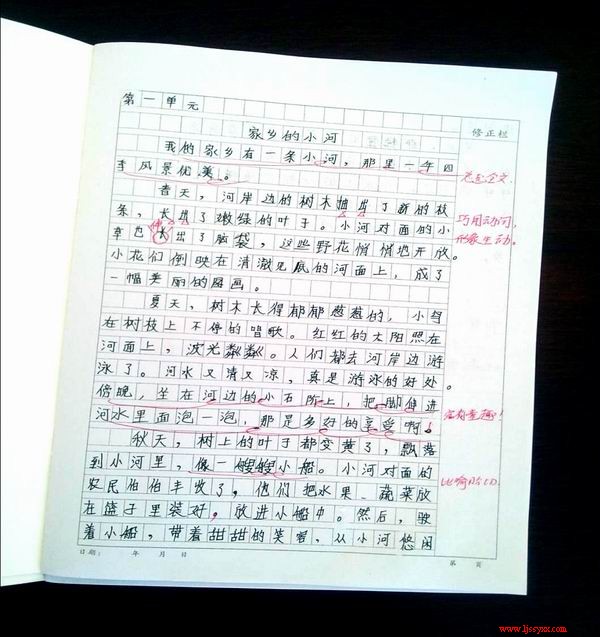 第一单元
修正栏
家乡的小河
我的家乡有一条小河，那里一年四
季风景优美。
总起全文
春天，河岸边的树木抽出了新的枝
条，长出了嫩绿的叶子。小河对面的小
巧用动词，
草也长出了脑袋，这些野花悄悄地开放。
形象生动。
小花们倒映在清澈见底的河面上，成了
一幅美丽的图画。
夏天，树木长得郁郁葱葱的，小鸟
在树枝上不停的唱歌。红红的太阳照在
河面上，波光粼粼。人们都去河岸边游
泳了。河水又清又凉，真是游泳的好处。
傍晚，坐在河边的小石阶上，把脚伸进
河水里面泡一泡，那是多好的享受啊！
秋天，树上的叶子都变黄了，飘落
到小河里，像一艘艘小船。小河对面的
比喻贴切
农民伯伯丰收了，他们把水果、蔬菜放
在篮子里装好，放进小船中。然后，驶
着小船，带着甜甜的笑容，从小河悠闲
日期： 年 月 日
第 页
www.ljssyxx.com